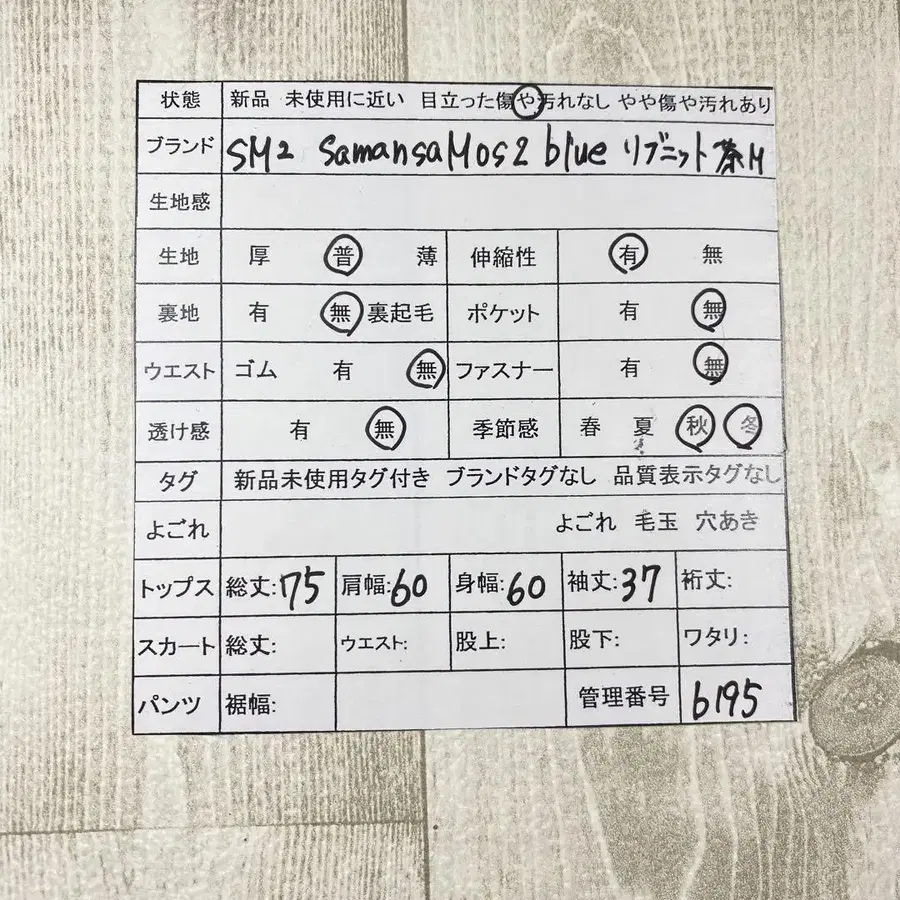 状態 新品 未使用に近い 目立った傷や汚れなし やや傷や汚れあり
ブランド SM2 SamansaMos2 blue リブニット 茶M
生地感
生地 厚 普 薄 伸縮性 有 無
裏地 有 無 裏起毛 ポケット 有 無
ウエスト ゴム 有 無 ファスナー 有 無
透け感 有 無 季節感 春 夏 秋 冬
タグ 新品未使用タグ付き ブランドタグなし 品質表示タグなし
よごれ よごれ 毛玉 穴あき
トップス 総丈:75 肩幅:60 身幅:60 袖丈:37 裄丈:
スカート 総丈: ウエスト: 股上: 股下: ワタリ:
パンツ 裾幅: 管理番号 b195